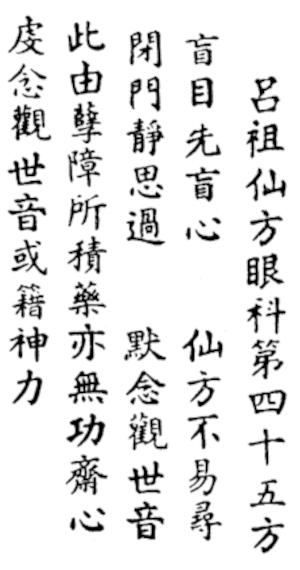 呂祖仙方眼科第四十五方
盲目先盲心 仙方不易尋
閉門靜思過 默念觀世音
此由孽障所積藥亦無功齋心
虔念觀世音或籍神力